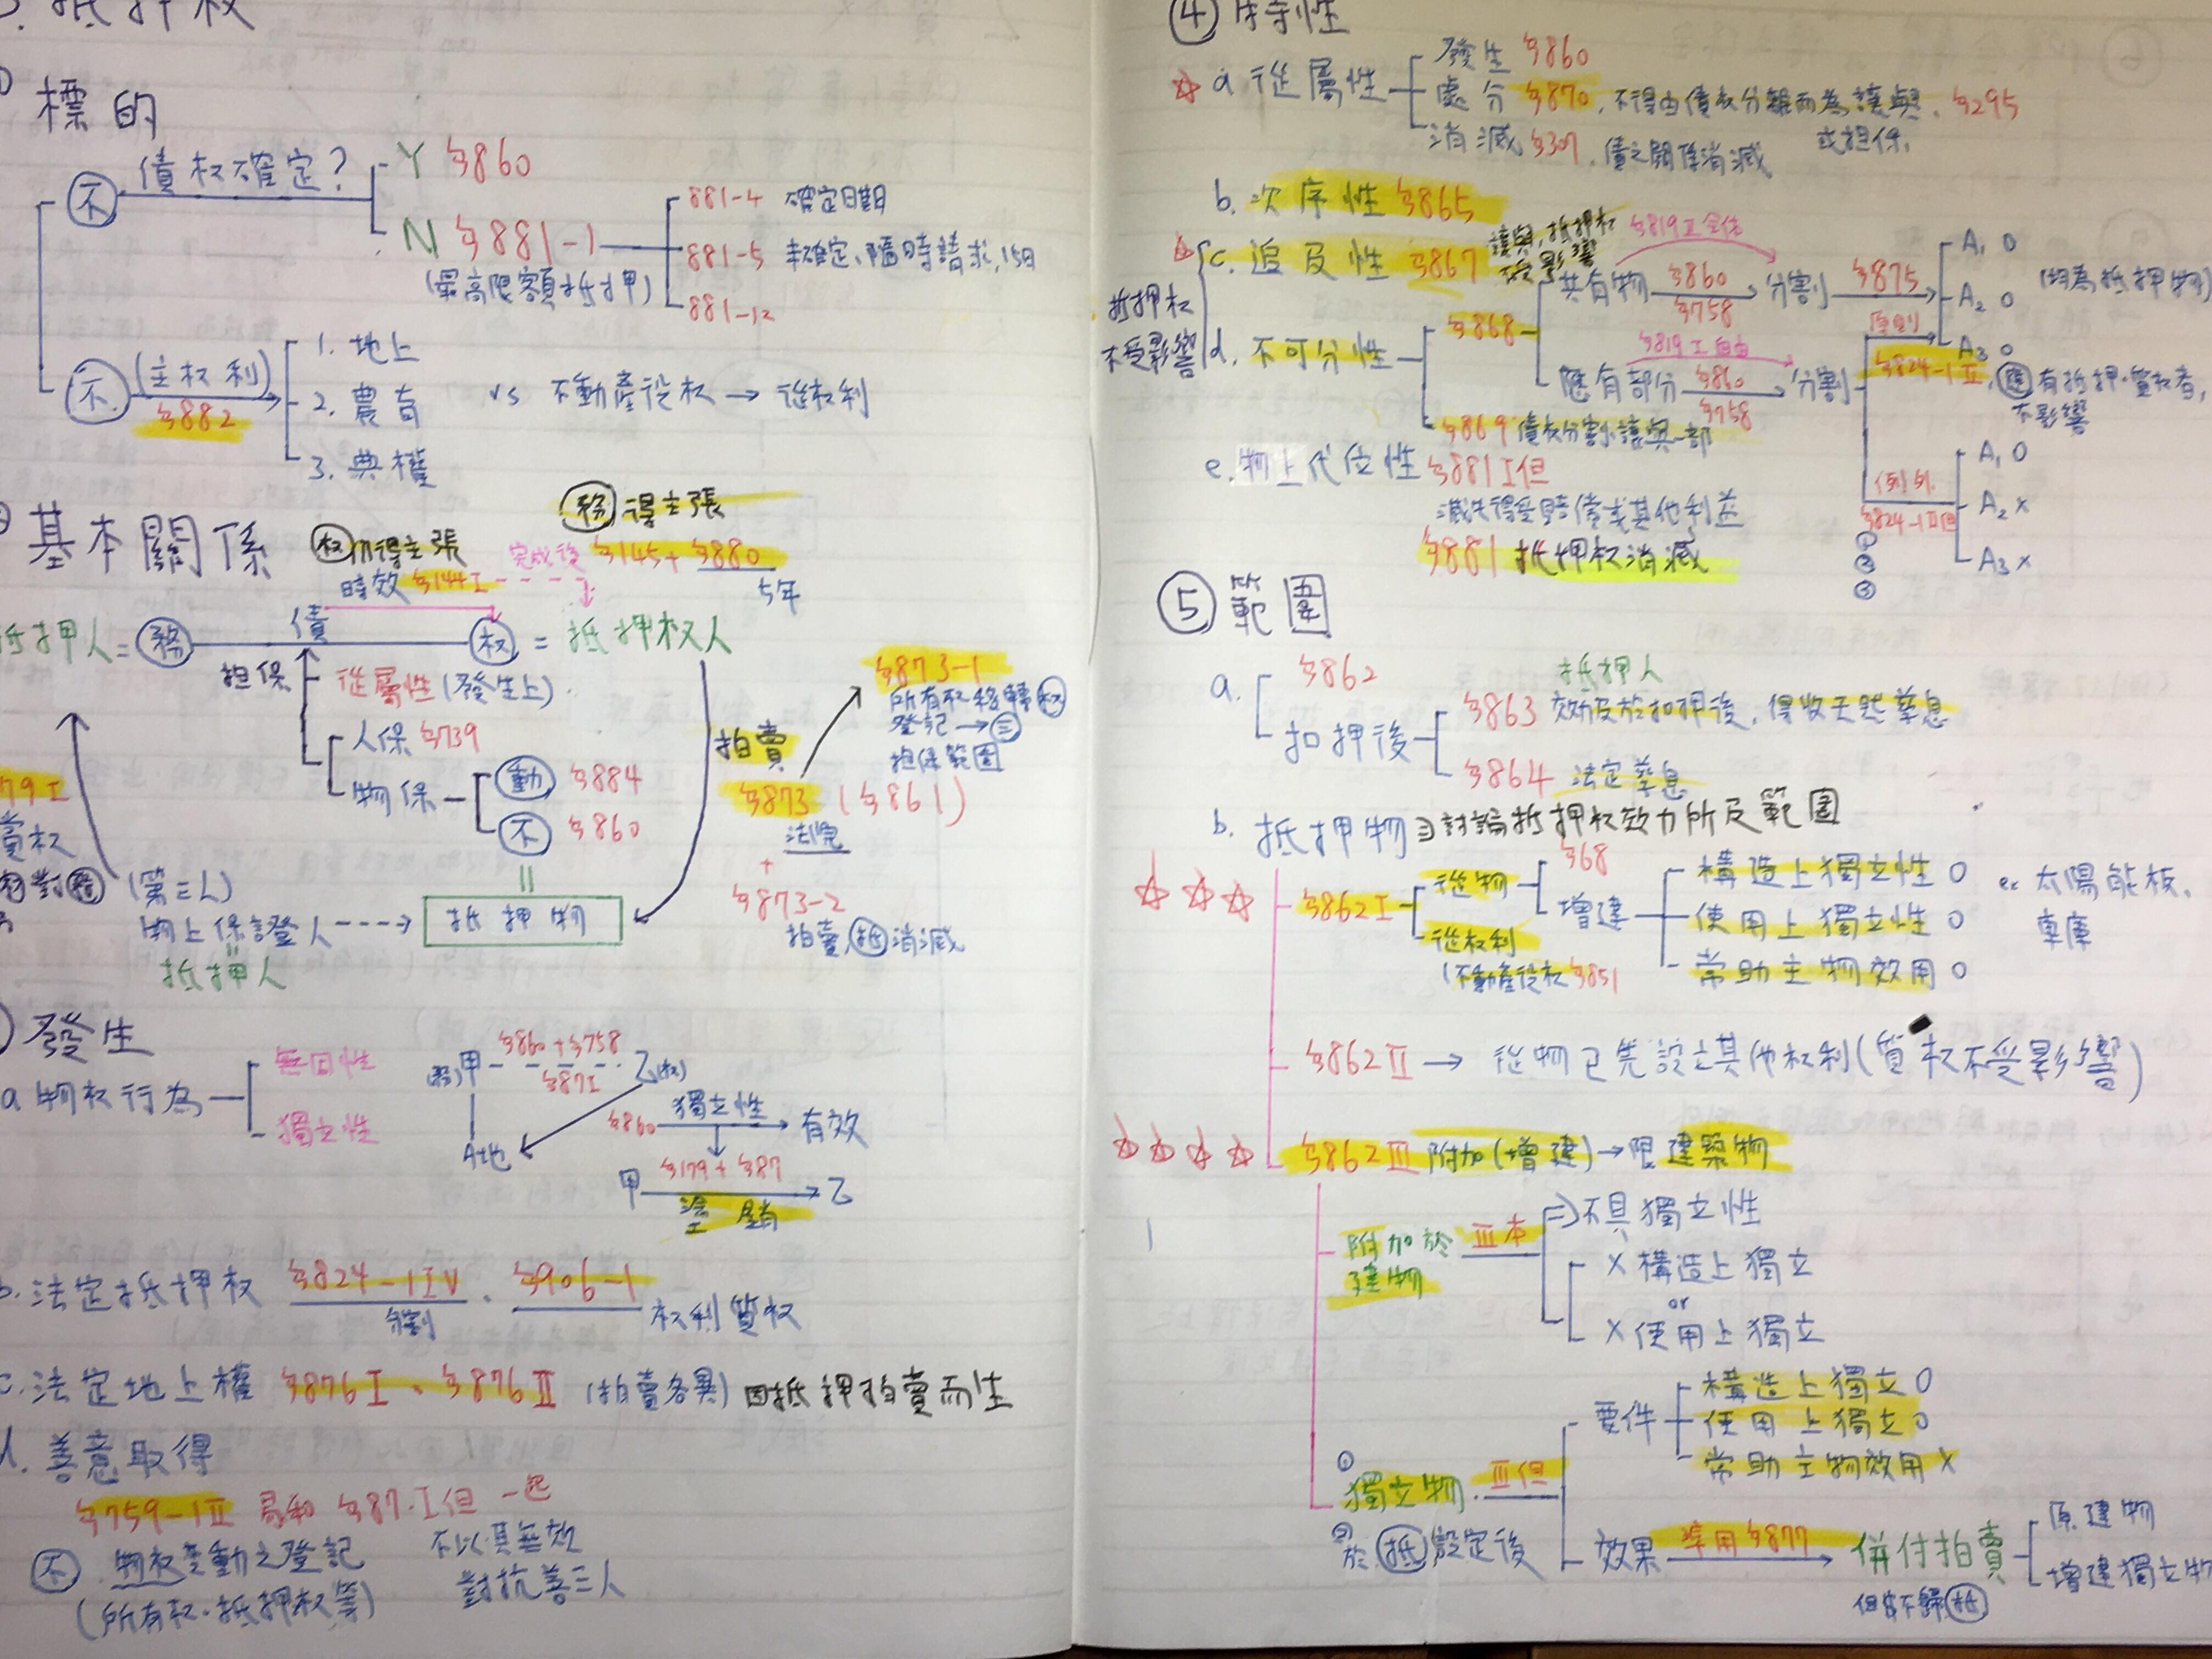 抵押权
標的
不 債权確定?
Y §860
N §881-1
(最高限額抵押)
881-4 確定日期
881-5 未確定、隨時請求,15日
881-12
不 (主权利)
§882
1. 地上
2. 農育 vs 不動產役权→從权利
3. 典權
基本關係
权仍得主張
時效 §144I
完成後
務得主張
§145+§880
5年
抵押人=務 債 权=抵押权人
担保 從屬性(發生上)
人保 §739
物保
動 §884
不 §860
拍賣
§873 (§861)
法院
+
§873-2
拍賣,抵消滅
§873-1
所有权移轉权
登記→三
担保範圍
79I
(第三人)
物上保證人
抵押人
抵押物
發生
a 物权行為
無因性
獨立性
(務)甲 §860+§758 乙(权)
§87I
A地
§860 獨立性 有效
甲 §179+§87 乙
塗銷
b.法定抵押权 §824-1IV、§906-1 权利質权
分割
c.法定地上權 §876I、§876II (拍賣各異) 因抵押拍賣而生
d.善意取得
§759-1II 易和 §87I但 一起
不.物权變動之登記
(所有权.抵押权等)
不以其無效
對抗善三人
④特性
a 從屬性
發生 §860
處分 §870,不得由債权分離而為讓與、§295
或担保.
消滅 §307,債之關係消滅
b. 次序性 §865
c. 追及性 §867
讓與,抵押权
不受影響
抵押权
不受影響
d. 不可分性
§868
共有物 §860 §758 分割 §875
§819II全体
A1 O
A2 O
A3 O
(均為抵押物)
應有部分 §860 §758 分割
§819I自由
原則
§824-1II,有抵押.質权者,
不影響
例外
§824-1II但
①
②
③
A1 O
A2 X
A3 X
§869 債权分割、讓與一部
e.物上代位性 §881I但
滅失得受賠償或其他利益
§881 抵押权消滅
⑤範圍
a. §862
扣押後
抵押人
§863 效力及於扣押後,得收天然孳息
§864 法定孳息
b. 抵押物⇒討論抵押权效力所及範圍
§862I
從物
§68
增建
構造上獨立性 O
使用上獨立性 O
常助主物效用 O
ex 太陽能板、
車庫
從权利
(不動產役权§851
§862II→從物已先設立其他权利(質权不受影響)
§862III 附加(增建)→限建築物
附加於
建物
III本
⇒不具獨立性
X構造上獨立
or
X使用上獨立
①
獨立物.III但
②於抵設定後
要件
構造上獨立O
使用上獨立O
常助主物效用X
效果 準用§877 併付拍賣
原建物
增建獨立物